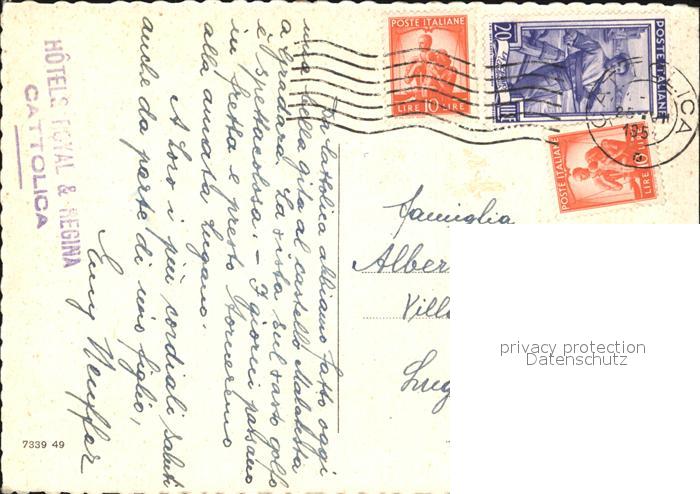 HÔTELS ROYAL & REGINA
CATTOLICA
Da Cattolica abbiamo fatto oggi
una bella gita al castello Malatesta
a Gradara. La vista sul vasto golfo
è spettacolosa. - I giorni passano
in fretta e presto torneremo
alla amata Lugano.
A Loro i più cordiali saluti
anche da parte di mio figlio,
Emy Neuffer
7339 49
POSTE ITALIANE
LIRE 10 LIRE
POSTE ITALIANE
20
LIRE
POSTE ITALIANE
10
LIRE
LICA
195
famiglia
Alber
Villa
Lug
privacy protection
Datenschutz